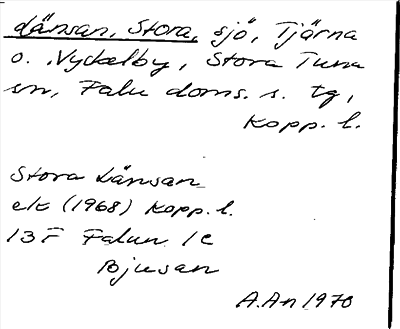 Länsan, Stora, sjö, Tjärna
o. Nyckelby, Stora Tuna
sn, Falu doms. s. tg,
Kopp. l.
Stora Länsan
ek (1968) Kopp. l.
13 F Falun 1c
Bjusan
A.An 1970